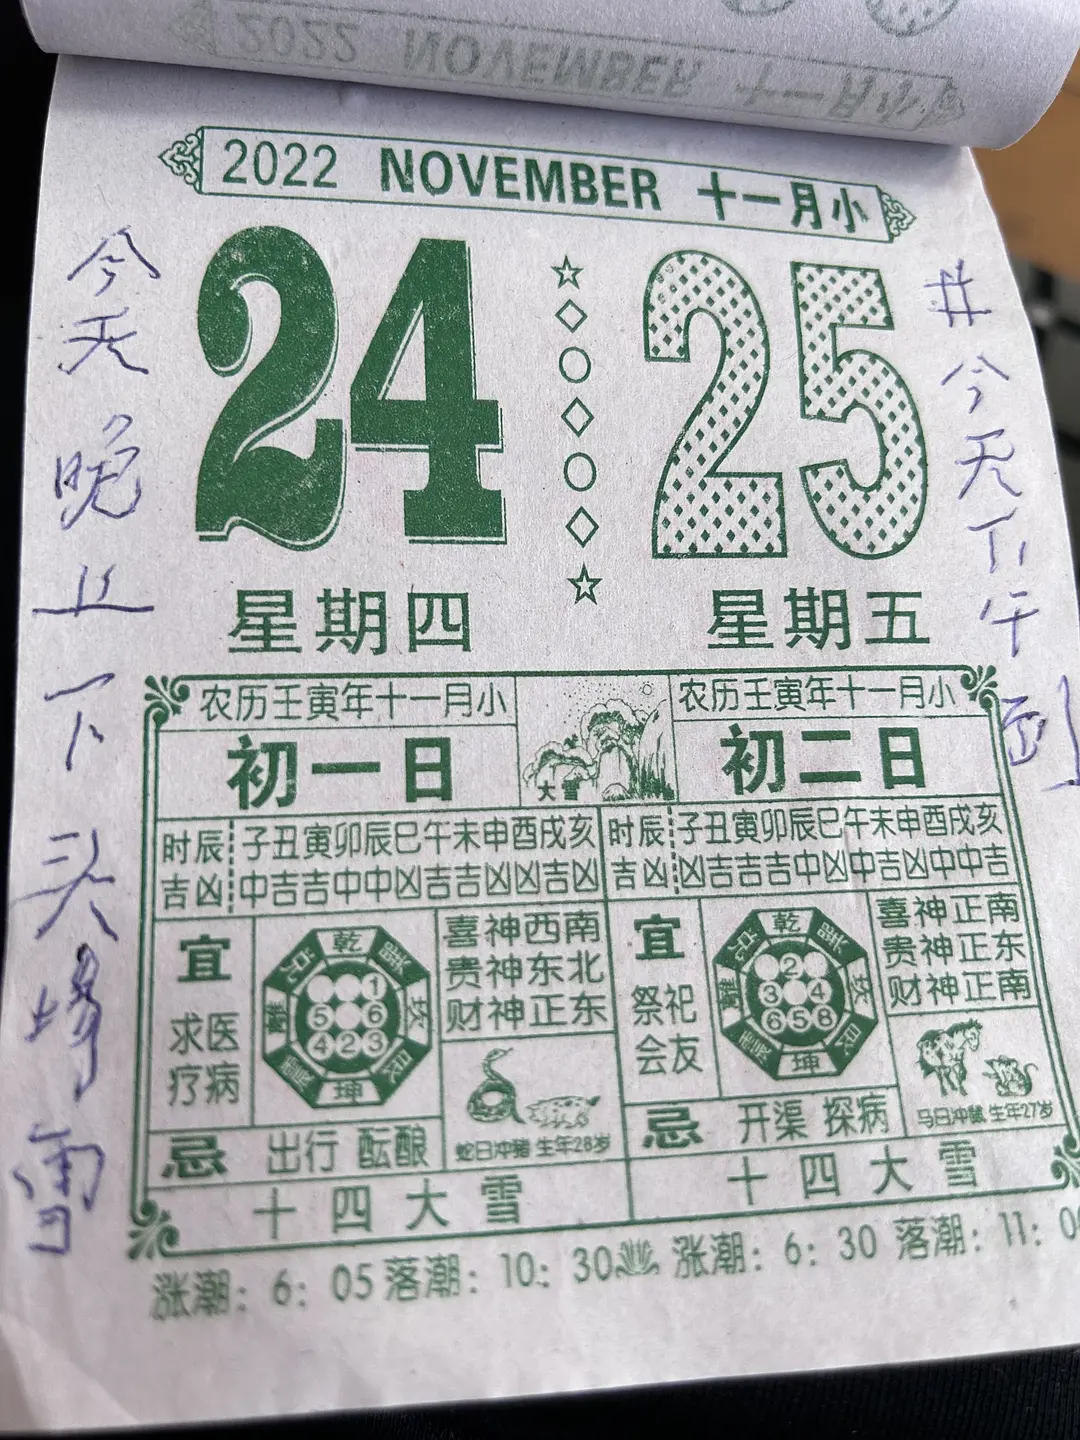 2022 NOVEMBER 十一月小
24 25
星期四 星期五
今天晚上下头场雪
井今天下午到
农历壬寅年十一月小
初一日
大雪
农历壬寅年十一月小
初二日
时辰 子丑寅卯辰巳午未申酉戌亥
吉凶 中吉吉中中凶吉吉凶凶吉凶
时辰 子丑寅卯辰巳午未申酉戌亥
吉凶 凶吉吉吉中凶中吉凶中中吉
宜
求医
疗病
乾 巽 坎 艮 坤 震 離 兑
1
5 6
4 2 3
喜神西南
贵神东北
财神正东
蛇日冲猪 生年28岁
忌 出行 酝酿
十四大雪
宜
祭祀
会友
乾 巽 坎 艮 坤 震 離 兑
2
3 4
6 5 8
喜神正南
贵神正东
财神正南
马日冲鼠 生年27岁
忌 开渠 探病
十四大雪
涨潮：6：05 落潮：10：30 涨潮：6：30 落潮：11：0